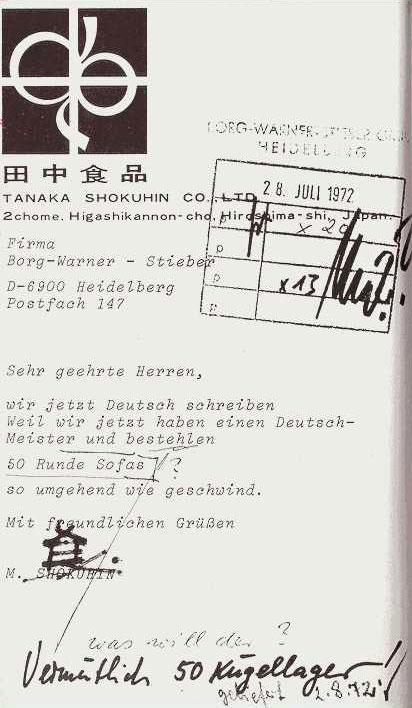 田中食品
TANAKA SHOKUHIN CO., LTD.
2chome. Higashikannon-cho, Hiroshima-shi, Japan.
BORG-WARNER-STIEBER GMBH
HEIDELBERG
28. JULI 1972
x 20
x 13
Firma
Borg-Warner - Stieber
D-6900 Heidelberg
Postfach 147
Sehr geehrte Herren,
wir jetzt Deutsch schreiben
Weil wir jetzt haben einen Deutsch-
Meister und bestehlen
50 Runde Sofas ?
so umgehend wie geschwind.
Mit freundlichen Grüßen
M. SHOKUHIN
was will der ?
Vermutlich 50 Kugellager!
geliefert 2.8.72